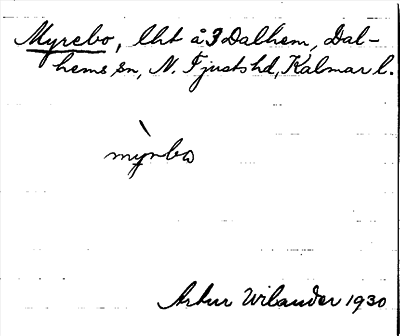 Myrebo, lht å 3 Dalhem, Dal-
hems sn, N. Tjusts hd, Kalmar l.
mỳrbo
Artur Wilander 1930